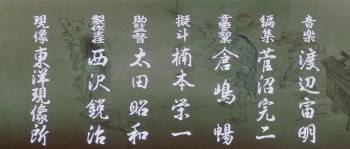 音楽 渡辺宙明
編集 菅沼完二
記録 倉嶋暢
擬斗 楠本栄一
助監督 太田昭和
製作主任 西沢鋭治
現像 東洋現像所